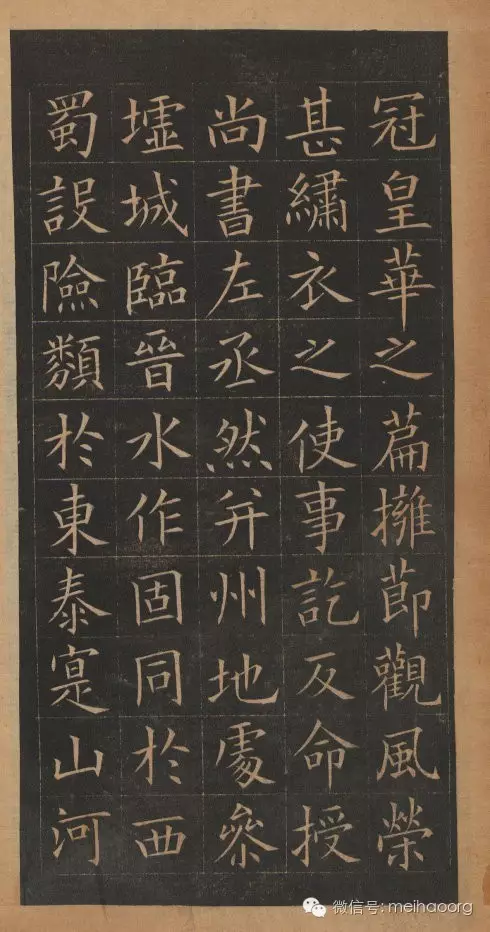 冠皇華之篇擁節觀風榮
甚繡衣之使事訖反命授
尚書左丞然并州地處叅
墟城臨晉水作固同於西
蜀設險類於東泰寔山河
微信号: meihaoorg